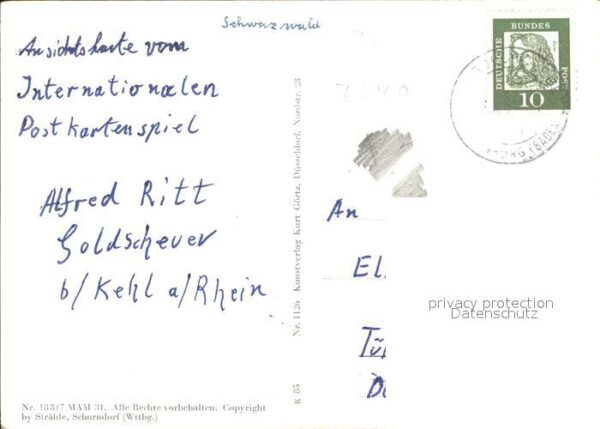 Schwarzwald
Ansichtskarte vom
Internationalen
Postkartenspiel
Alfred Ritt
Goldscheuer
b/Kehl a/Rhein
Nr. 18817 MAM 31. Alle Rechte vorbehalten. Copyright
by Strähle, Schorndorf (Wttbg.)
K 85 Nr. 1126 Kunstverlag Kurt Görtz, Düsseldorf, Nordstr. 28
DEUTSCHE BUNDES POST
10
(BADEN
An
El.
privacy protection
Datenschutz